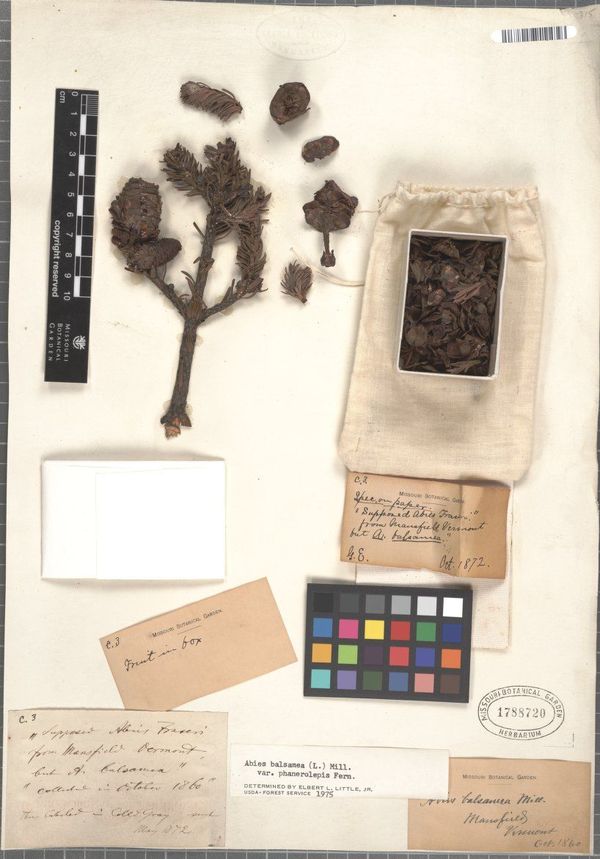 cm
0 1 2 3 4 5 6 7 8 9 10
copyright reserved
MISSOURI
BOTANICAL
GARDEN
C. 2
MISSOURI BOTANICAL GARDEN.
Spec. on paper.
"Supposed Abies Fraseri"
from Mansfield Vermont
but A. balsamea."
G.E. Oct. 1872.
C. 3
MISSOURI BOTANICAL GARDEN.
Fruit in box
MISSOURI BOTANICAL GARDEN
1788720
HERBARIUM
C. 3
"Supposed Abies Fraseri
from Mansfield Vermont,
but A. balsamea"
"collected in October 1860"
in
Abies balsamea (L.) Mill.
var. phanerolepis Fern.
DETERMINED BY ELBERT L. LITTLE, JR.
USDA-FOREST SERVICE 1975
MISSOURI BOTANICAL GARDEN.
Abies balsamea Mill.
Mansfield
Vermont
Oct. 1860